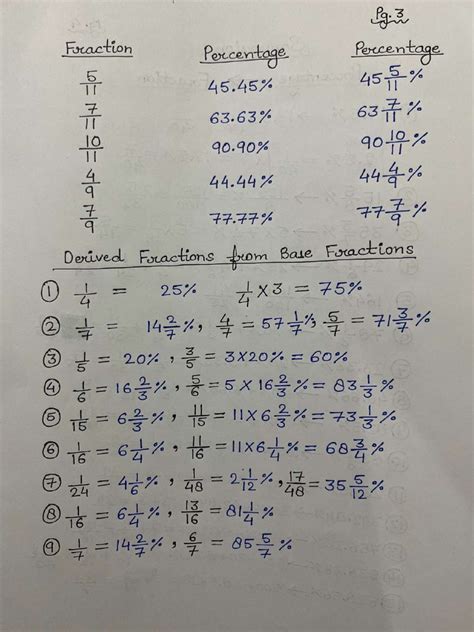 Pg. 3
Fraction Percentage Percentage
5/11 45.45% 45 5/11 %
7/11 63.63% 63 7/11 %
10/11 90.90% 90 10/11 %
4/9 44.44% 44 4/9 %
7/9 77.77% 77 7/9 %
Derived Fractions from Base Fractions
① 1/4 = 25% 1/4 × 3 = 75%
② 1/7 = 14 2/7 %, 4/7 = 57 1/7 %, 5/7 = 71 3/7 %
③ 1/5 = 20%, 3/5 = 3×20% = 60%
④ 1/6 = 16 2/3 %, 5/6 = 5 × 16 2/3 % = 83 1/3 %
⑤ 1/15 = 6 2/3 %, 11/15 = 11×6 2/3 % = 73 1/3 %
⑥ 1/16 = 6 1/4 %, 11/16 = 11×6 1/4 % = 68 3/4 %
⑦ 1/24 = 4 1/6 %, 1/48 = 2 1/12 %, 17/48 = 35 5/12 %
⑧ 1/16 = 6 1/4 %, 13/16 = 81 1/4 %
⑨ 1/7 = 14 2/7 %, 6/7 = 85 5/7 %